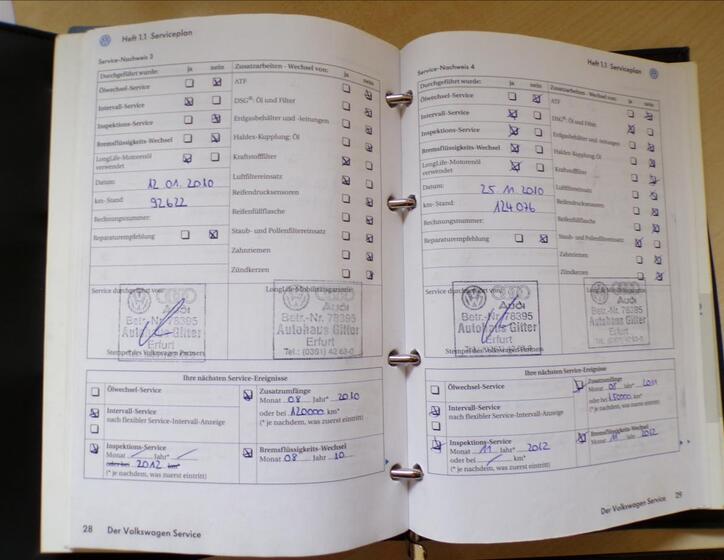 Heft 1.1 Serviceplan
Service-Nachweis 3
Durchgeführt wurde: ja nein
Zusatzarbeiten - Wechsel von: ja nein
Ölwechsel-Service
ATF
Intervall-Service
DSG®: Öl und Filter
Inspektions-Service
Erdgasbehälter und -leitungen
Bremsflüssigkeits-Wechsel
Haldex-Kupplung: Öl
LongLife-Motorenöl
verwendet
Kraftstofffilter
Datum: 12 01. 2010
Luftfiltereinsatz
Reifendrucksensoren
km-Stand: 92622
Reifenfüllflasche
Rechnungsnummer:
Staub- und Pollenfiltereinsatz
Reparaturempfehlung
Zahnriemen
Zündkerzen
Service durchgeführt von:
LongLife-Mobilitätsgarantie
Audi
Betr.-Nr. 78395
Autohaus Gitter
Erfurt
Stempel des Volkswagen Partners
Audi
Betr.-Nr. 78395
Autohaus Gitter
Erfurt
Tel.: (0361) 42 63-0
Ihre nächsten Service-Ereignisse
Ölwechsel-Service
Zusatzumfänge
Monat 08 Jahr* 2010
oder bei 120000 km*
(* je nachdem, was zuerst eintritt)
Intervall-Service
nach flexibler Service-Intervall-Anzeige
Inspektions-Service
Monat Jahr*
oder bei 2012 km*
(* je nachdem, was zuerst eintritt)
Bremsflüssigkeits-Wechsel
Monat 08 Jahr 10
28 Der Volkswagen Service
Heft 1.1 Serviceplan
Service-Nachweis 4
Durchgeführt wurde: ja nein
Zusatzarbeiten - Wechsel von: ja nein
Ölwechsel-Service
ATF
Intervall-Service
DSG®: Öl und Filter
Inspektions-Service
Erdgasbehälter und -leitungen
Bremsflüssigkeits-Wechsel
Haldex-Kupplung: Öl
LongLife-Motorenöl
verwendet
Kraftstofffilter
Datum: 25 11. 2010
Luftfiltereinsatz
Reifendrucksensoren
km-Stand: 124076
Reifenfüllflasche
Rechnungsnummer:
Staub- und Pollenfiltereinsatz
Reparaturempfehlung
Zahnriemen
Zündkerzen
Service durchgeführt von:
Audi
Betr.-Nr. 78395
Autohaus Gitter
Erfurt
Stempel des Volkswagen Partners
Audi
Betr.-Nr. 78395
Autohaus Gitter
Erfurt
Ihre nächsten Service-Ereignisse
Ölwechsel-Service
Zusatzumfänge
Monat 08 Jahr 2011
oder bei 150000 km*
(* je nachdem, was zuerst eintritt)
Intervall-Service
nach flexibler Service-Intervall-Anzeige
Inspektions-Service
Monat 11 Jahr* 2012
oder bei km*
(* je nachdem, was zuerst eintritt)
Bremsflüssigkeits-Wechsel
Monat 11 Jahr 2012
Der Volkswagen Service 29